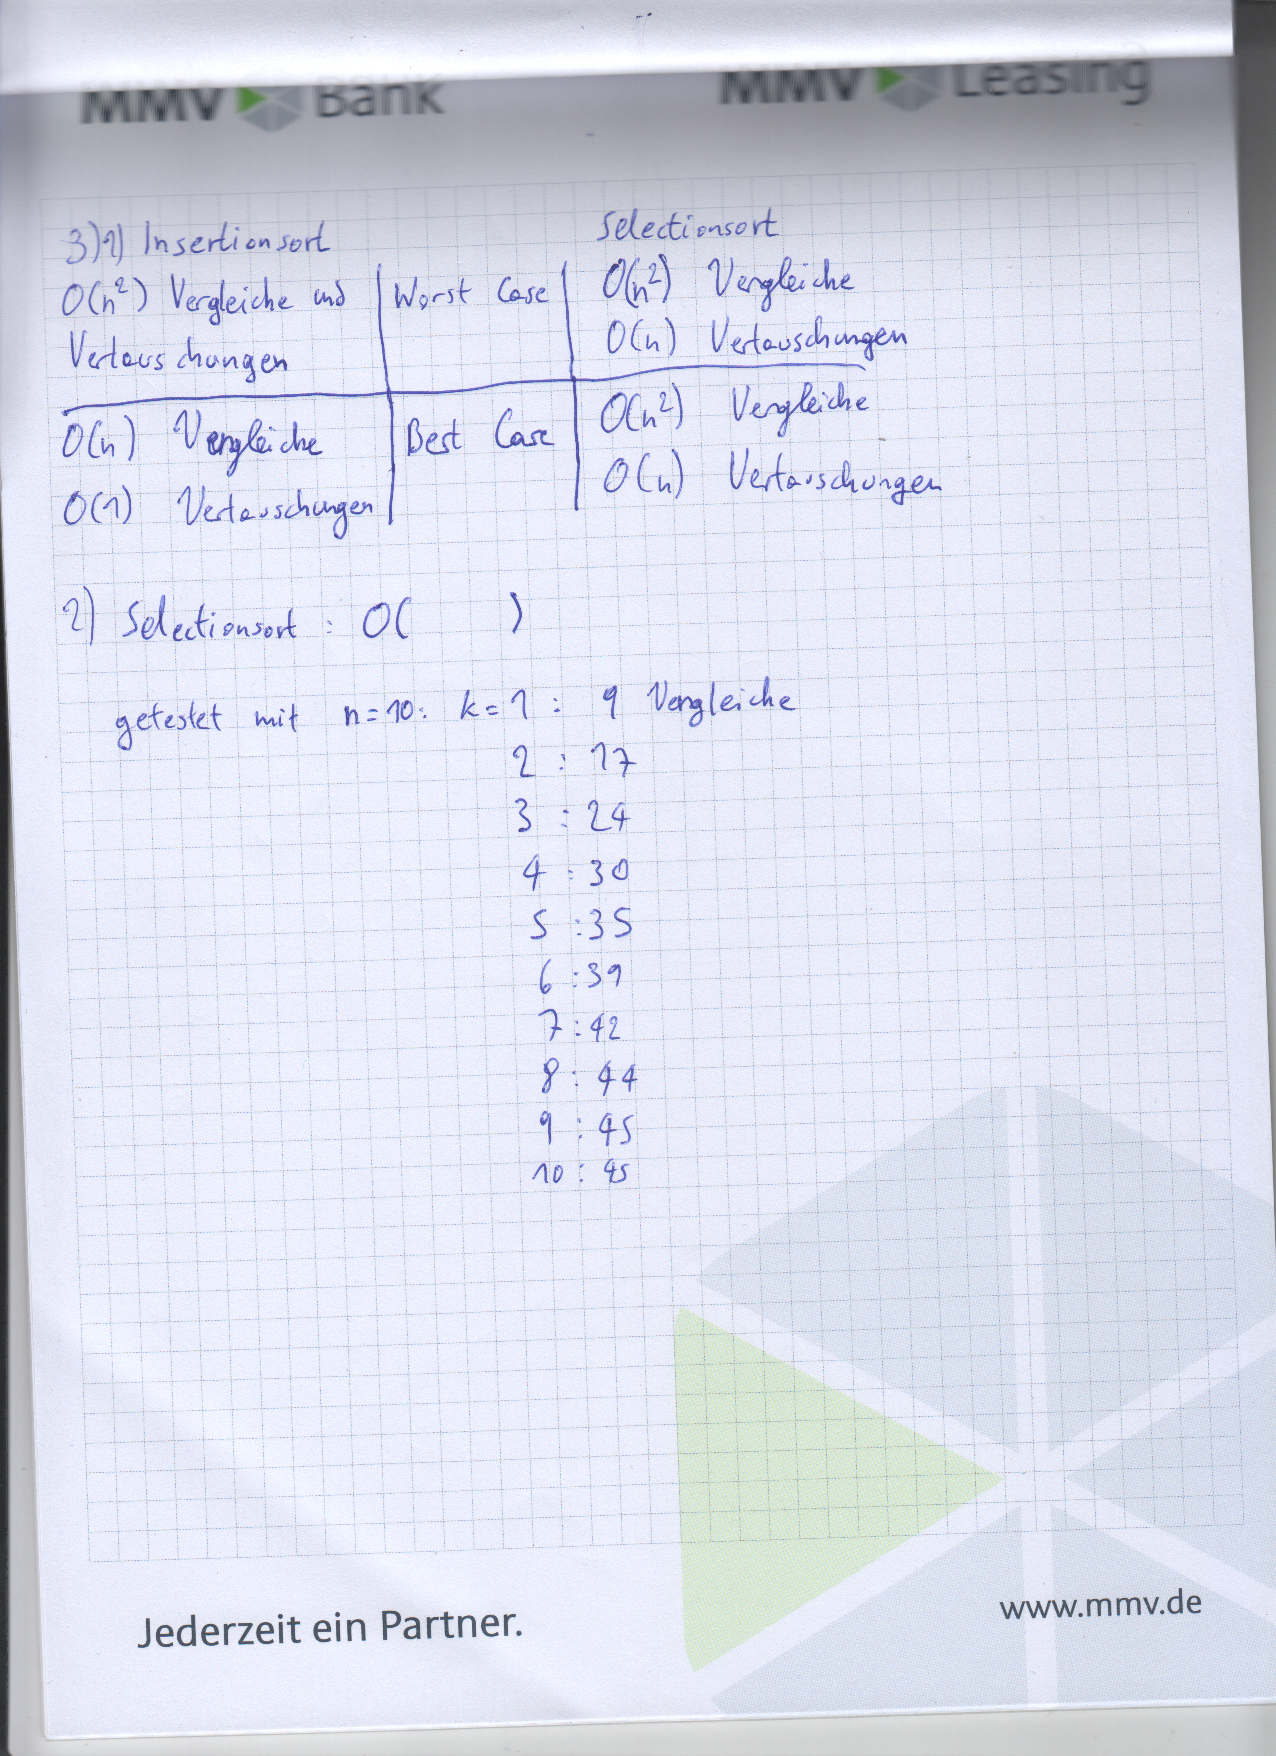 MMV Bank
MMV Leasing
3)1) Insertionsort
Selectionsort
O(n²) Vergleiche und
Vertauschungen
Worst Case
O(n²) Vergleiche
O(n) Vertauschungen
O(n) Vergleiche
O(1) Vertauschungen
Best Case
O(n²) Vergleiche
O(n) Vertauschungen
2) Selectionsort : O( )
getestet mit n=10: k=1 : 9 Vergleiche
2 : 17
3 : 24
4 : 30
5 : 35
6 : 39
7 : 42
8 : 44
9 : 45
10 : 45
Jederzeit ein Partner.
www.mmv.de